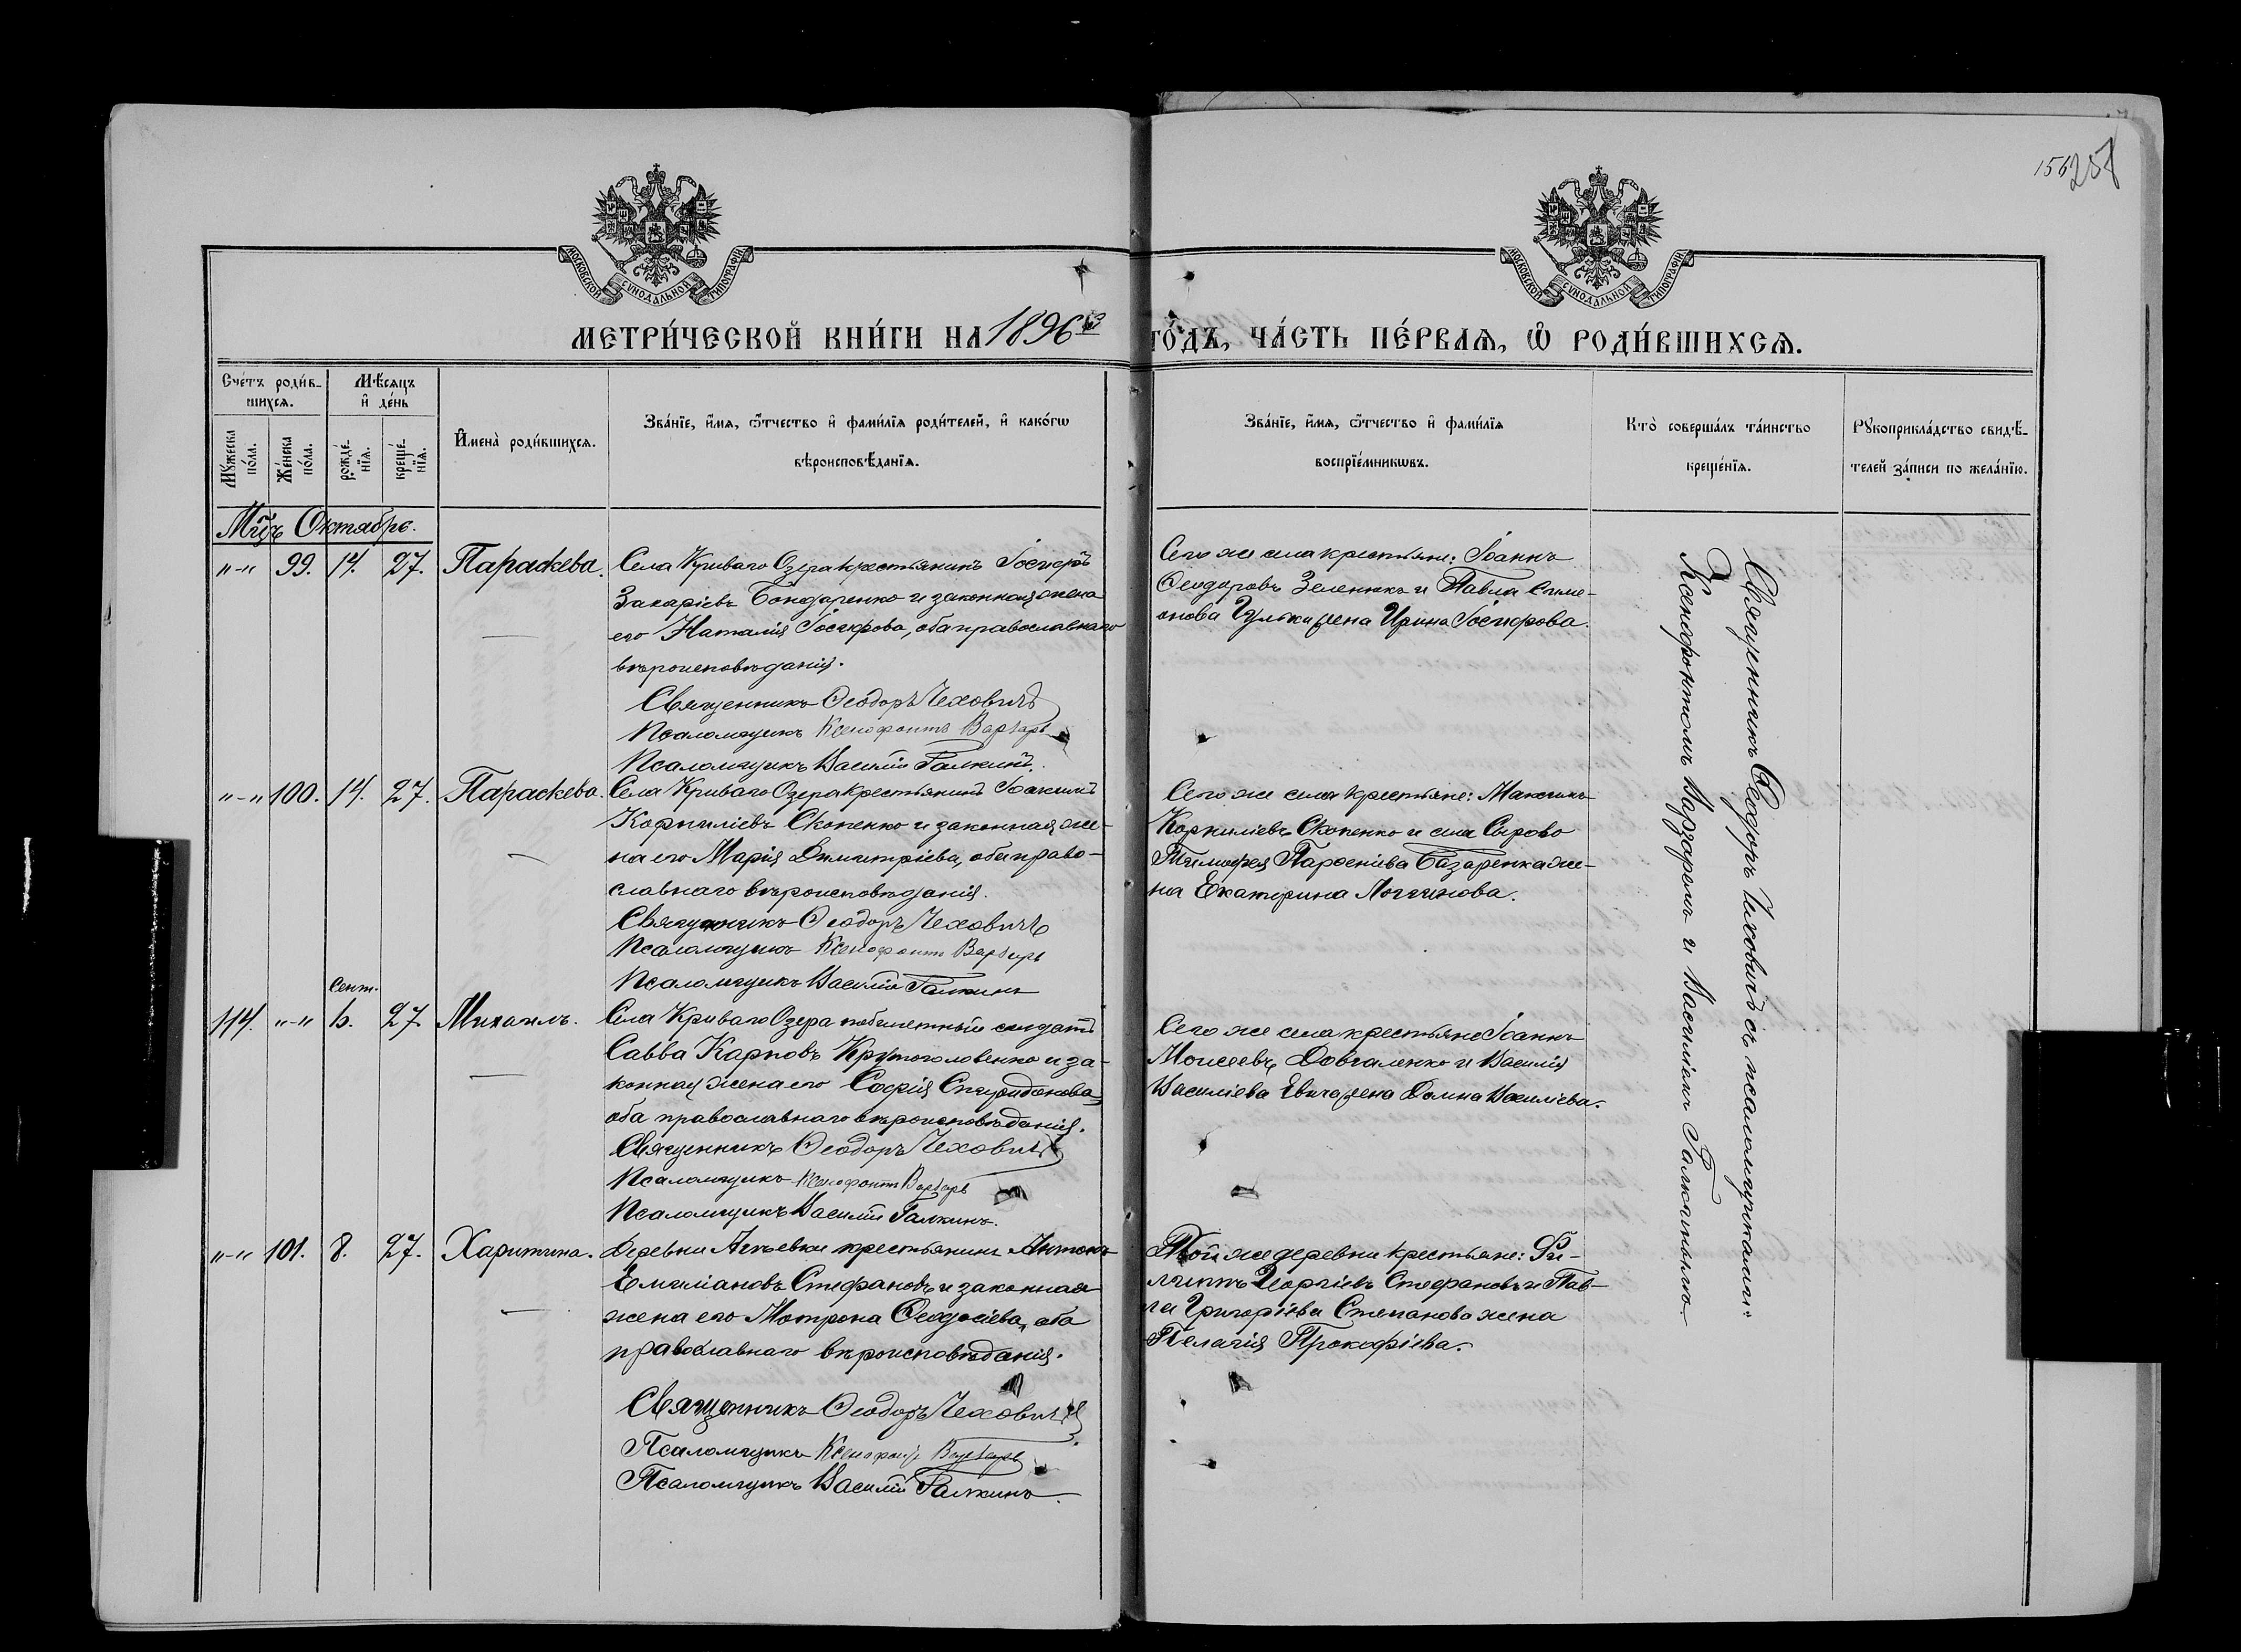 156 258
МОСКОВСКОЙ СУНОДАЛЬНОЙ ТИПОГРАФІИ
МОСКОВСКОЙ СУНОДАЛЬНОЙ ТИПОГРАФІИ
МЕТРИ́ЧЕСКОЙ КНИ́ГИ НА 1896й
ГО́ДЪ, ЧА́СТЬ ПЕ́РВАѦ, Ѡ҆ РОДИ́ВШИХСѦ.
Сче́тъ роди́в-
шихсѧ.
Мѣ́сѧцъ
и҆ де́нь
Мꙋ́жеска по́ла.
Же́нска по́ла.
рожде́-
нїѧ.
креще́-
нїѧ.
И҆мена̀ роди́вшихсѧ.
Зва́нїе, и҆́мѧ, ѻ҆́тчество и҆ фами́лїѧ роди́телей, и҆ како́гѡ
вѣроисповѣ́данїѧ.
Зва́нїе, и҆́мѧ, ѻ҆́тчество и҆ фами́лїѧ
воспрїе́мникѡвъ.
Кто̀ соверша́лъ та́инство
креще́нїѧ.
Рꙋкоприкла́дство свидѣ́-
телей за́писи по жела́нїю.
Мцъ Октябрь.
"-" 99. 14. 27. Параскева.
Села Криваго Озера крестьянинъ Іосифъ
Захаріевъ Бондаренко и законная жена
его Наталія Іосифова, оба православнаго
вѣроисповѣданія.
Священникъ Ѳеодоръ Чеховичъ
Псаломщикъ Ксенофонтъ Варзарь
Псаломщикъ Василій Галкинъ.
Сего же села крестьяне: Іоаннъ
Ѳеодоровъ Зеленюкъ и Павла Симе-
онова Гулька жена Ирина Іосифова.
"-" 100. 14. 27. Параскева.
Села Криваго Озера крестьянинъ Іоакимъ
Корниліевъ Скопенко и законная же-
на его Марія Димитріева, оба право-
славнаго вѣроисповѣданія.
Священникъ Ѳеодоръ Чеховичъ
Псаломщикъ Ксенофонтъ Варзарь
Псаломщикъ Василій Галкинъ
Сего же села крестьяне: Максимъ
Корниліевъ Скопенко и села Сырово
Тимофея Парѳеніева Базаренка же-
на Екатерина Логгинова.
114. "-" сент. 6. 27. Михаилъ.
Села Криваго Озера побилетный солдатъ
Савва Карповъ Крутоголовенко и за-
конная жена его Софія Спиридонова,
оба православнаго вѣроисповѣданія.
Священникъ Ѳеодоръ Чеховичъ
Псаломщикъ Ксенофонтъ Варзарь
Псаломщикъ Василій Галкинъ.
Сего же села крестьяне Іоаннъ
Моисеевъ Довгаленко и Василія
Васильева жена Домна Василіева.
"-" 101. 8. 27. Харитина.
Деревни крестьянинъ Антонъ
Емиліановъ Стефановъ и законная
жена его Мотрона Ѳеодосіева, оба
православнаго вѣроисповѣданія.
Священникъ Ѳеодоръ Чеховичъ
Псаломщикъ Ксенофонтъ Варзарь
Псаломщикъ Василій Галкинъ.
Той же деревни крестьяне: Фи-
липпъ Георгіевъ Стефановъ и Пав-
ла Григоріева Степанова жена
Пелагія Прокофіева.
Священникъ Ѳеодоръ Чеховичъ съ псаломщиками:
Ксенофонтомъ Варзаремъ и Василіемъ Галкинымъ.